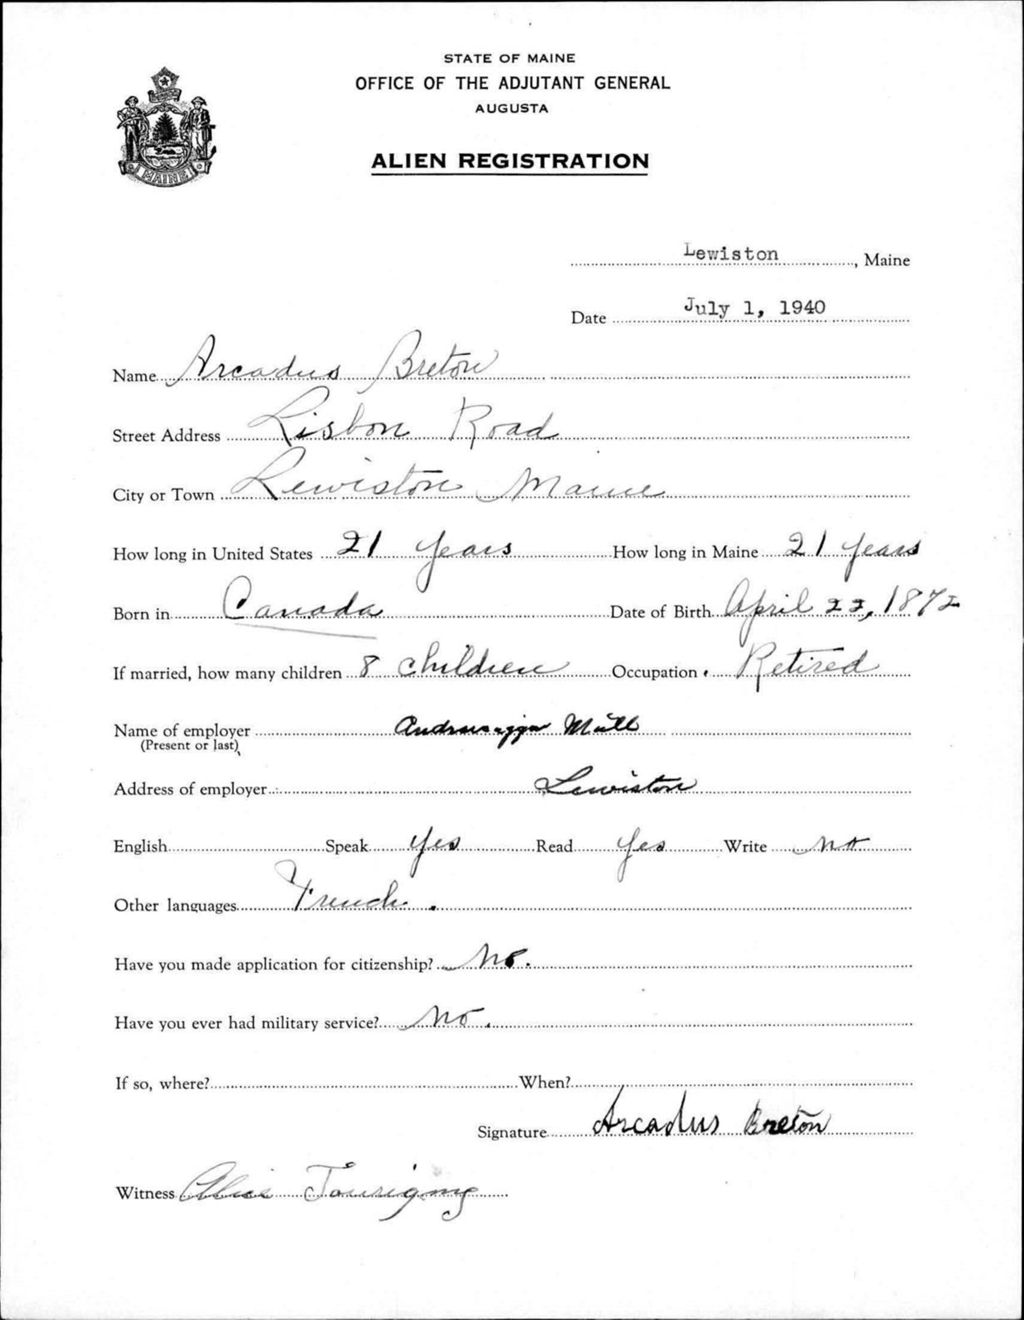 STATE OF MAINE
OFFICE OF THE ADJUTANT GENERAL
AUGUSTA
ALIEN REGISTRATION
MAINE
Lewiston, Maine
Date July 1, 1940
Name Arcadus Breton
Street Address Lisbon Road
City or Town Lewiston Maine
How long in United States 21 years How long in Maine 21 years
Born in Canada Date of Birth April 22, 1872
If married, how many children 8 children Occupation. Retired
Name of employer Mill
(Present or last)
Address of employer Lewiston
English Speak yes Read yes Write no
Other languages French.
Have you made application for citizenship? No.
Have you ever had military service? No.
If so, where? When?
Signature Arcadus Breton
Witness Alice Tourigny